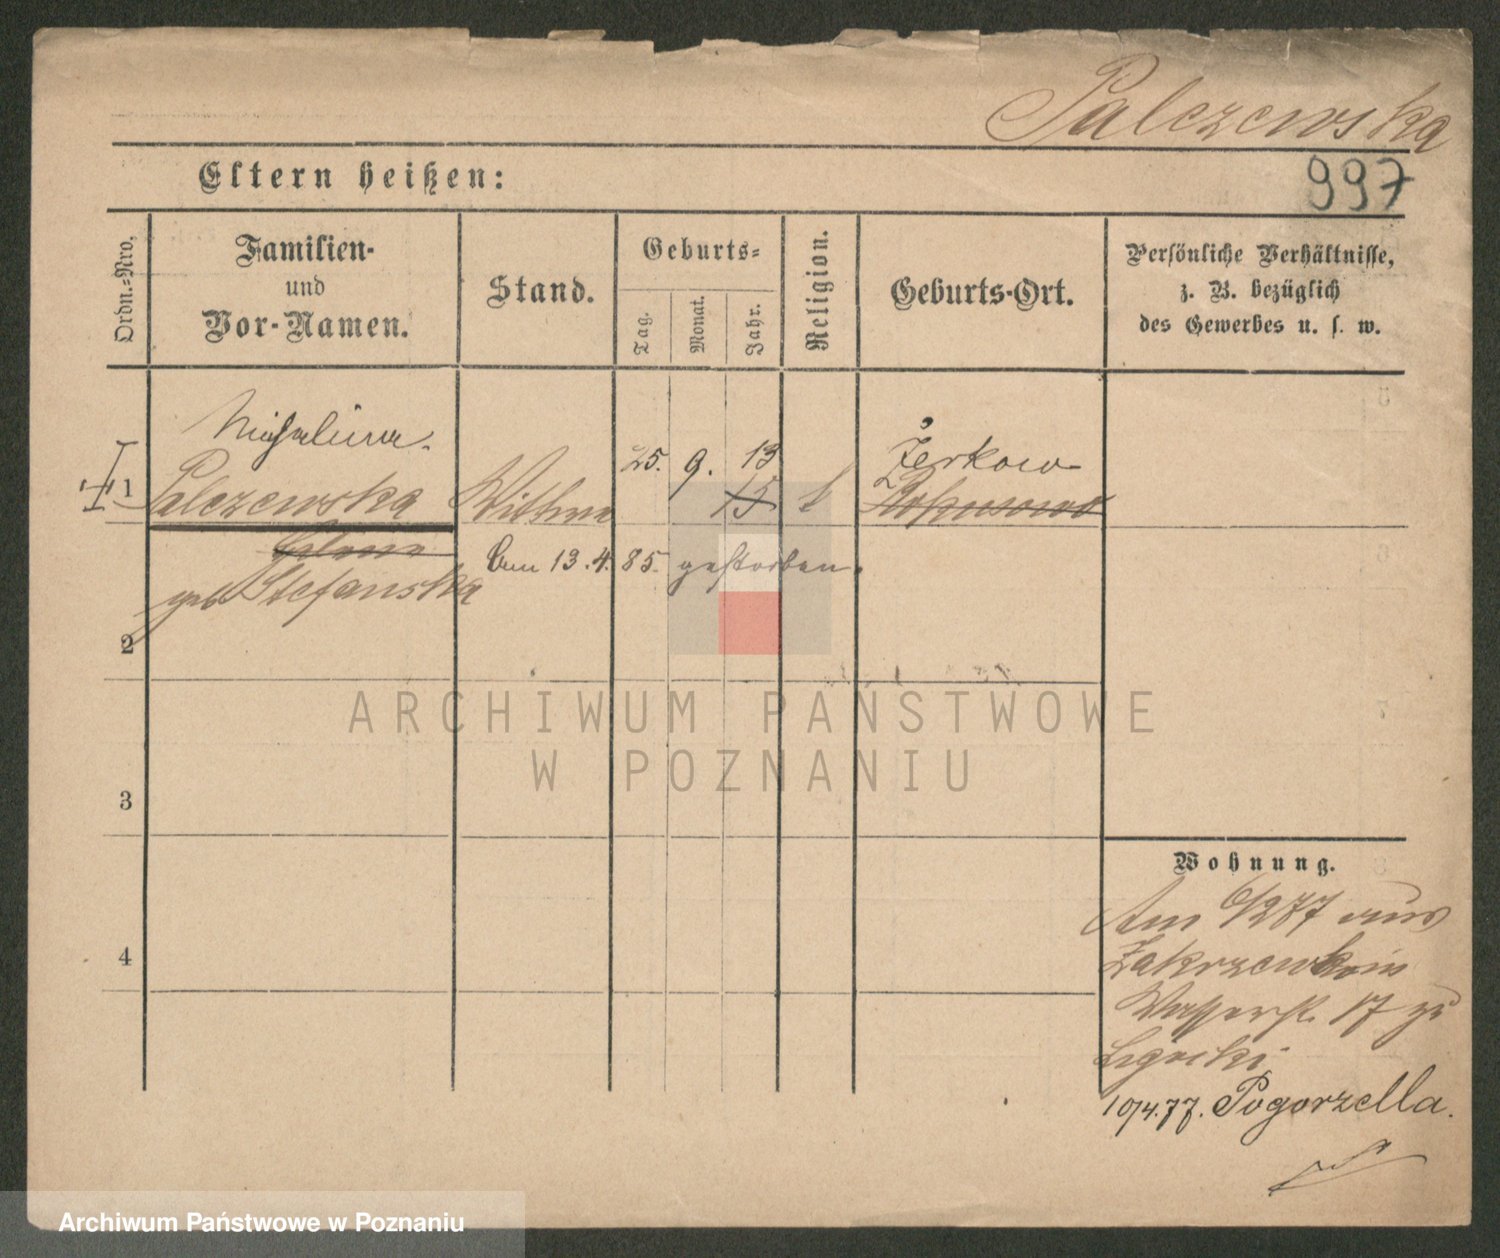 Palczewska
Eltern heißen:
997
Ordn.-Nro.
Familien-
und
Vor-Namen.
Stand.
Geburts-
Tag.
Monat.
Jahr.
Religion.
Geburts-Ort.
Persönliche Verhältnisse,
z. B. bezüglich
des Gewerbes u. s. w.
Michalina
1 Palczewska Wittwe 25. 9. 13 15 k Żerkow
geb Stefanska
am 13.4.85 gestorben.
2
3
4
Wohnung.
Am 6/2 77 aus
Zakrzewko in
Wasserst. 17 zu
10/4.77. Pogorzella.
ARCHIWUM PAŃSTWOWE
W POZNANIU
Archiwum Państwowe w Poznaniu